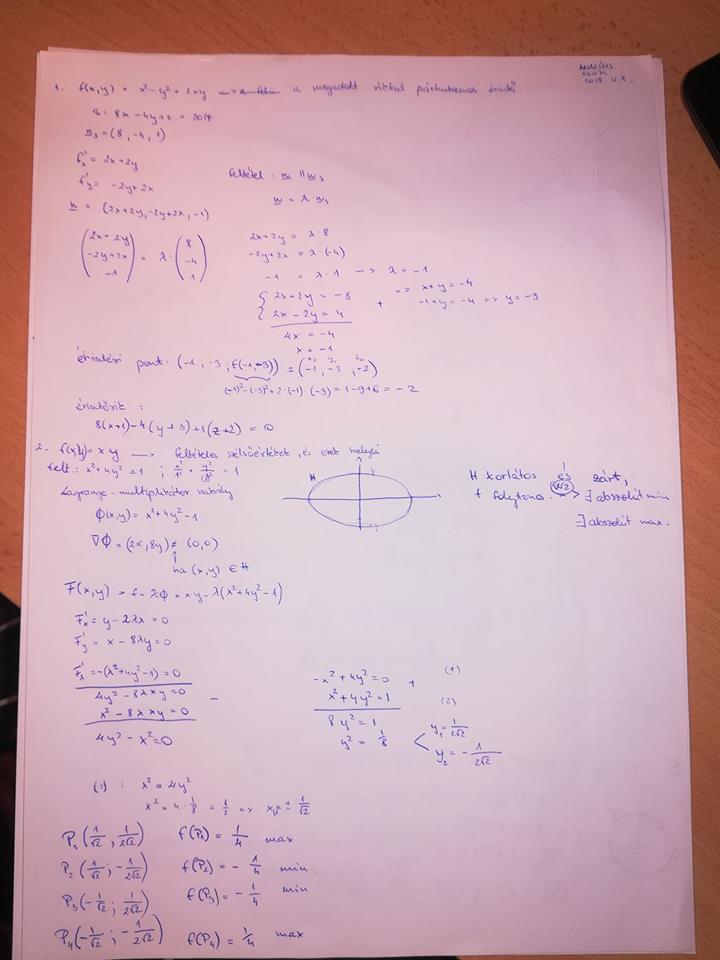 1. f(x,y) = x² - y² + 2xy → a megadott síkkal párhuzamos érintő
S: 8x - 4y + z = 2017
n_s = (8, -4, 1)
f'x = 2x + 2y
f'y = -2y + 2x
feltétel: n ∥ n_s
n = (2x+2y, -2y+2x, -1)
n = λ·n_s
(2x+2y, -2y+2x, -1) = λ·(8, -4, 1)
2x+2y = λ·8
-2y+2x = λ·(-4)
-1 = λ·1 → λ = -1
{ 2x+2y = -8
2x-2y = 4 +
4x = -4
x = -1
=> x+y = -4
-1+y = -4 => y = -3
érintési pont: (-1, -3; f(-1,-3)) = (-1, -3, -2)
x₀ y₀ z₀
(-1)² - (-3)² + 2·(-1)·(-3) = 1-9+6 = -2
érintősík:
8(x+1) - 4(y+3) + 1(z+2) = 0
2. f(x,y) = x·y → feltételes szélsőértékek, és ezek helyei
felt.: x²+4y² = 1 ; x²/1² + y²/(½)² = 1
Lagrange-multiplikátor szabály:
H
H korlátos és zárt,
f folytonos. (W2) → ∃ abszolút min.
∃ abszolút max.
Φ(x,y) = x²+4y²-1
∇Φ = (2x, 8y) ≠ (0,0)
↑
ha (x,y) ∈ H
F(x,y) = f - λ·Φ = x·y - λ(x²+4y²-1)
F'x = y - 2λx = 0
F'y = x - 8λy = 0
F'λ = -(x²+4y²-1) = 0
4y² - 8λxy = 0
x² - 8λxy = 0 -
4y² - x² = 0
-x² + 4y² = 0 + (1)
x² + 4y² = 1 (2)
8y² = 1
y² = 1/8 < y₁ = 1/(2√2)
y₂ = -1/(2√2)
(1) : x² = 4y²
x² = 4·1/8 = 1/2 => x = ± 1/√2
P₁(1/√2; 1/(2√2)) f(P₁) = 1/4 max
P₂(1/√2; -1/(2√2)) f(P₂) = -1/4 min
P₃(-1/√2; 1/(2√2)) f(P₃) = -1/4 min
P₄(-1/√2; -1/(2√2)) f(P₄) = 1/4 max